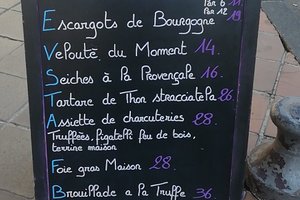 Par 6 11.
Par 12 19.
Escargots de Bourgogne
Velouté du Moment 14.
Seiches à la Provençale 16.
Tartare de Thon stracciatella 26.
Assiette de charcuteries 28.
Truffées, figatelli feu de bois,
terrine maison
Foie gras Maison 28.
Brouillade a la Truffe 36.